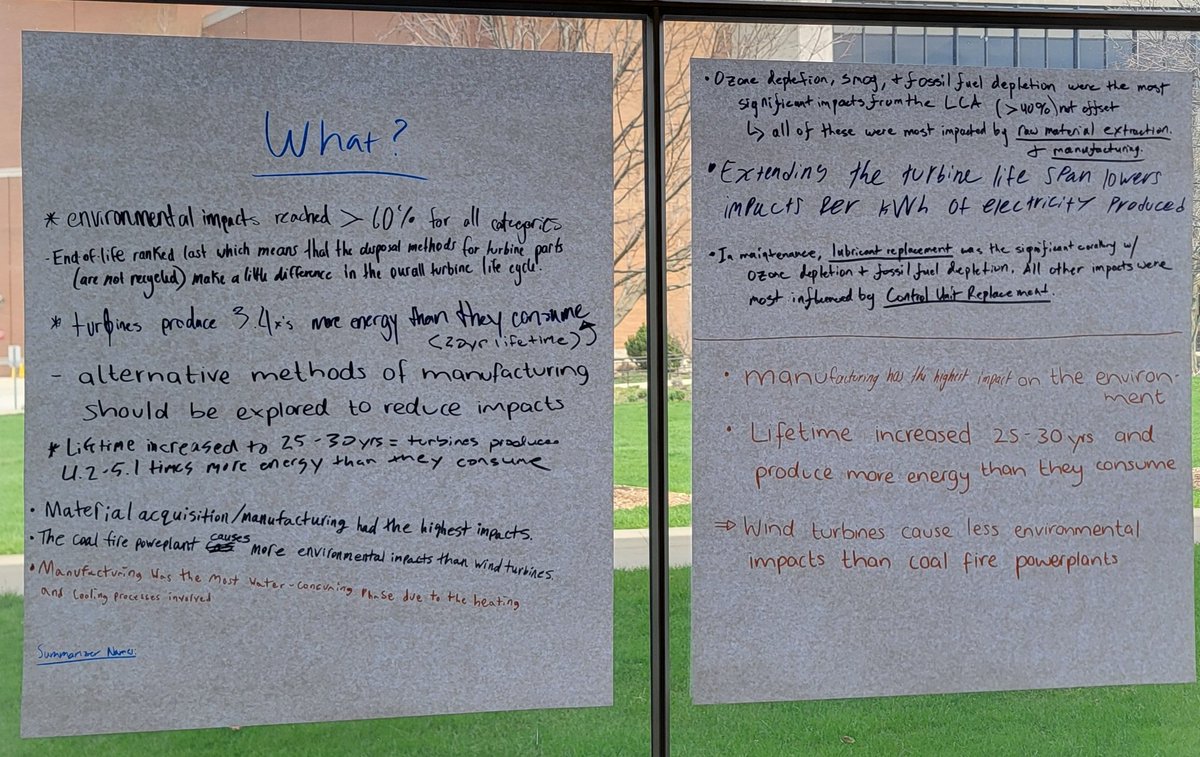 What?
* environmental impacts reached > 60% for all categories
- End-of-life ranked last which means that the disposal methods for turbine parts
(are not recycled) make a little difference in the overall turbine life cycle.
* turbines produce 3.4x's more energy than they consume
(20yr lifetime)
- alternative methods of manufacturing
should be explored to reduce impacts
* Lifetime increased to 25-30yrs = turbines produce
4.2-5.1 times more energy than they consume
• Material acquisition/manufacturing had the highest impacts.
• The coal fire poweplant causes more environmental impacts than wind turbines.
• Manufacturing was the most water-concuming phase due to the heating
and cooling processes involved
Summarizer Names:
• Ozone depletion, smog, + fossil fuel depletion were the most
significant impacts from the LCA (>40%) not offset
↳ all of these were most impacted by raw material extraction
+ manufacturing.
• Extending the turbine life span lowers
impacts per kWh of electricity produced
• In maintenance, lubricant replacement was the significant w/
ozone depletion + fossil fuel depletion. All other impacts were
most influenced by Control Unit Replacement.
• manufacturing has the highest impact on the environ-
ment
• Lifetime increased 25-30 yrs and
produce more energy than they consume
⇒ Wind turbines cause less environmental
impacts than coal fire powerplants